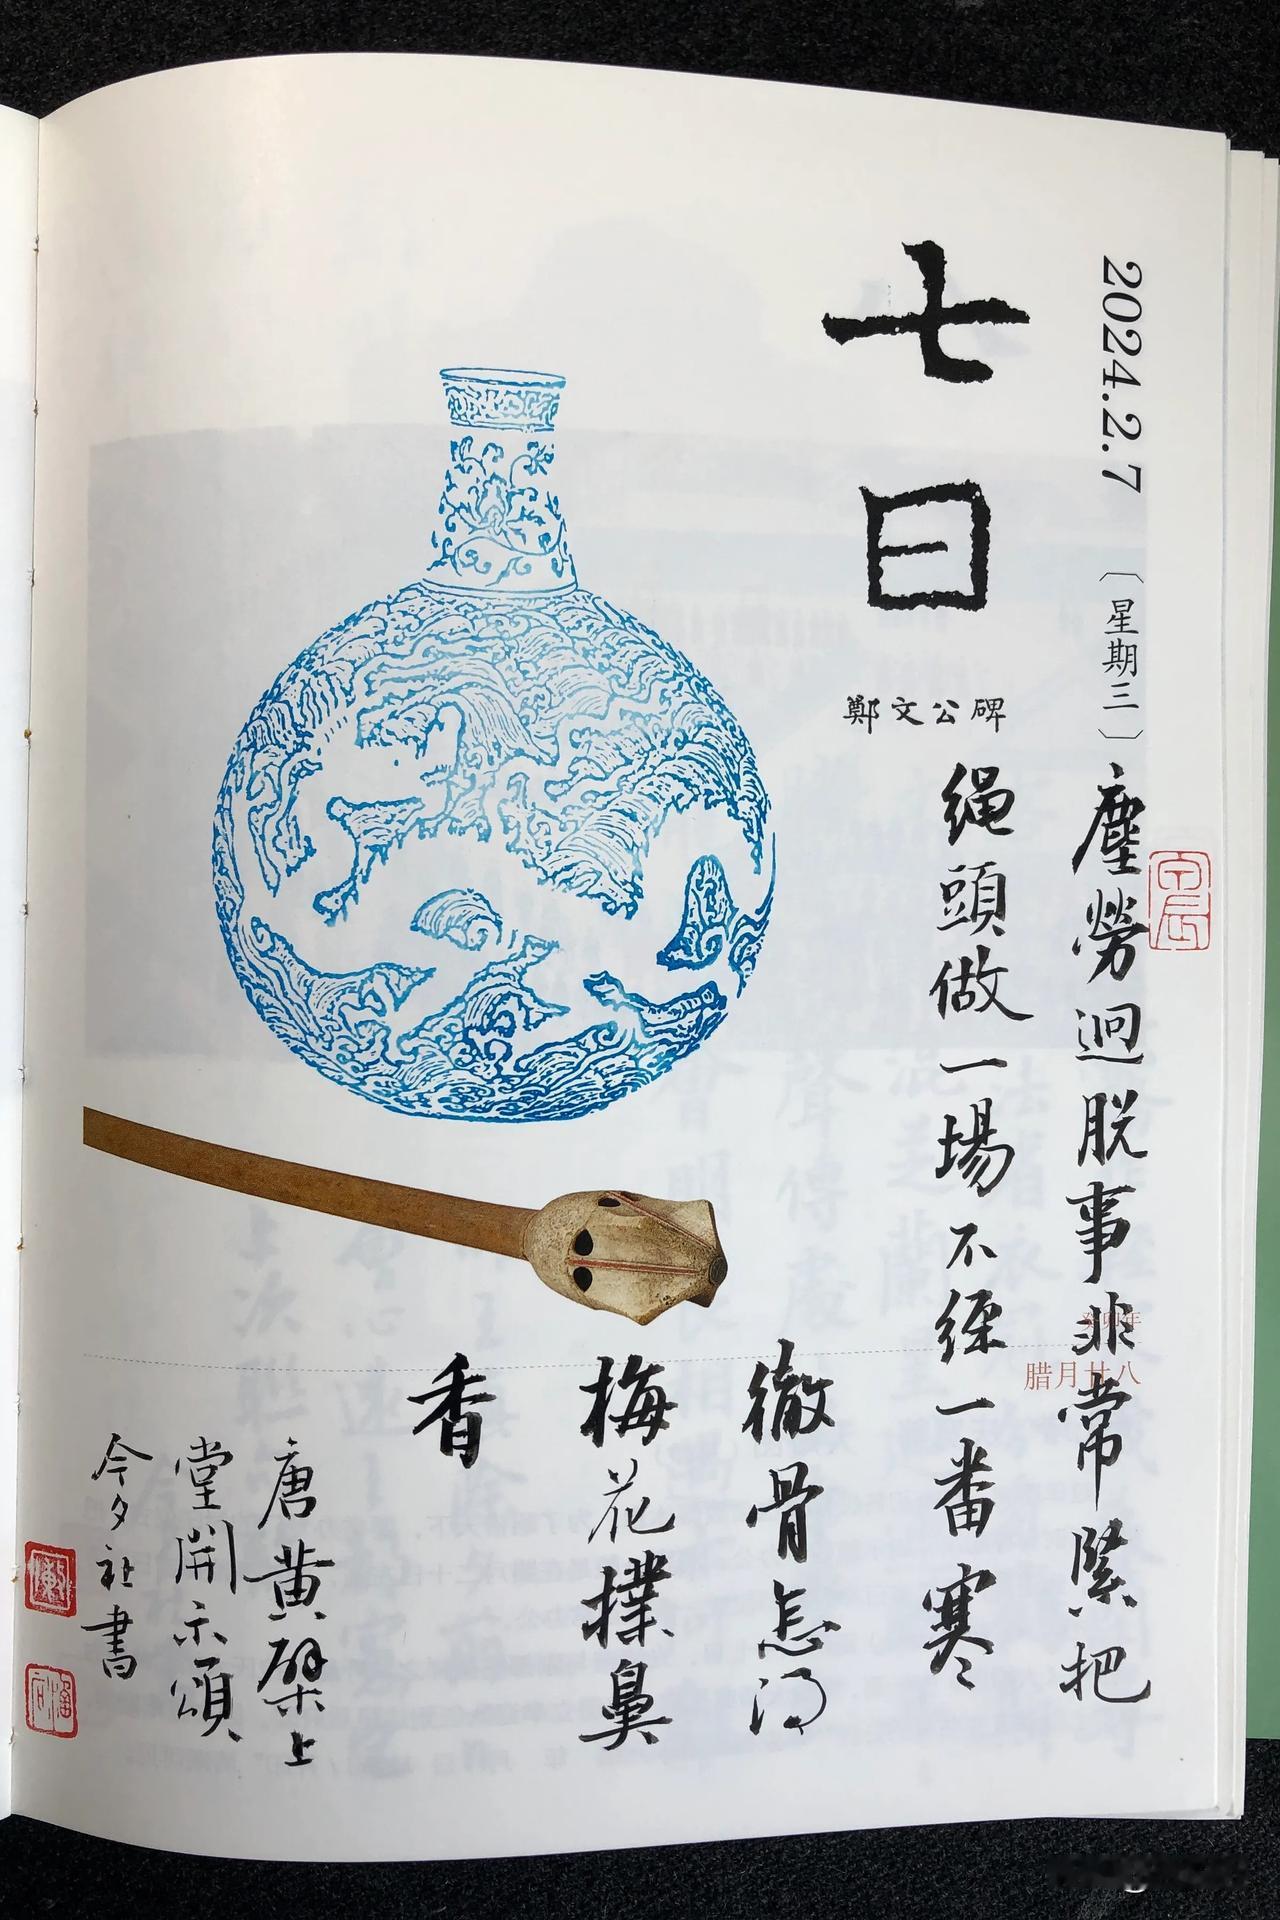 2024.2.7
〔星期三〕
七日
鄭文公碑
塵勞迥脱事非常緊把
绳頭做一場不經一番寒
徹骨怎得
梅花撲鼻
香
唐黄檗上
堂開示頌
今夕社書
癸卯年
腊月廿八